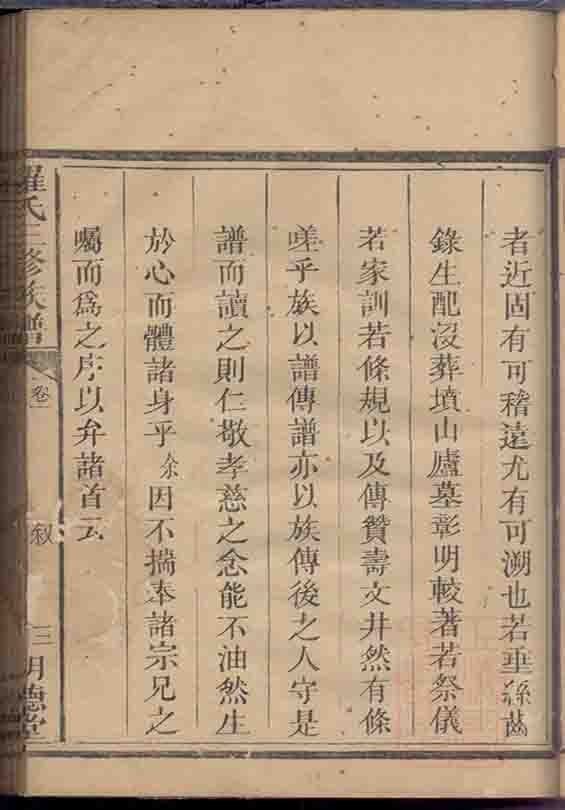 者近固有可稽遠尤有可溯也若垂絲齒
錄生配沒葬墳山廬墓彰明較著若祭儀
若家訓若條規以及傳贊壽文井然有條
嗟乎族以譜傳譜亦以族傳後之人守是
譜而讀之則仁敬孝慈之念能不油然生
於心而體諸身乎余因不揣奉諸宗兄之
囑而為之序以弁諸首云
羅氏三修族譜
卷
叙
三
明德堂